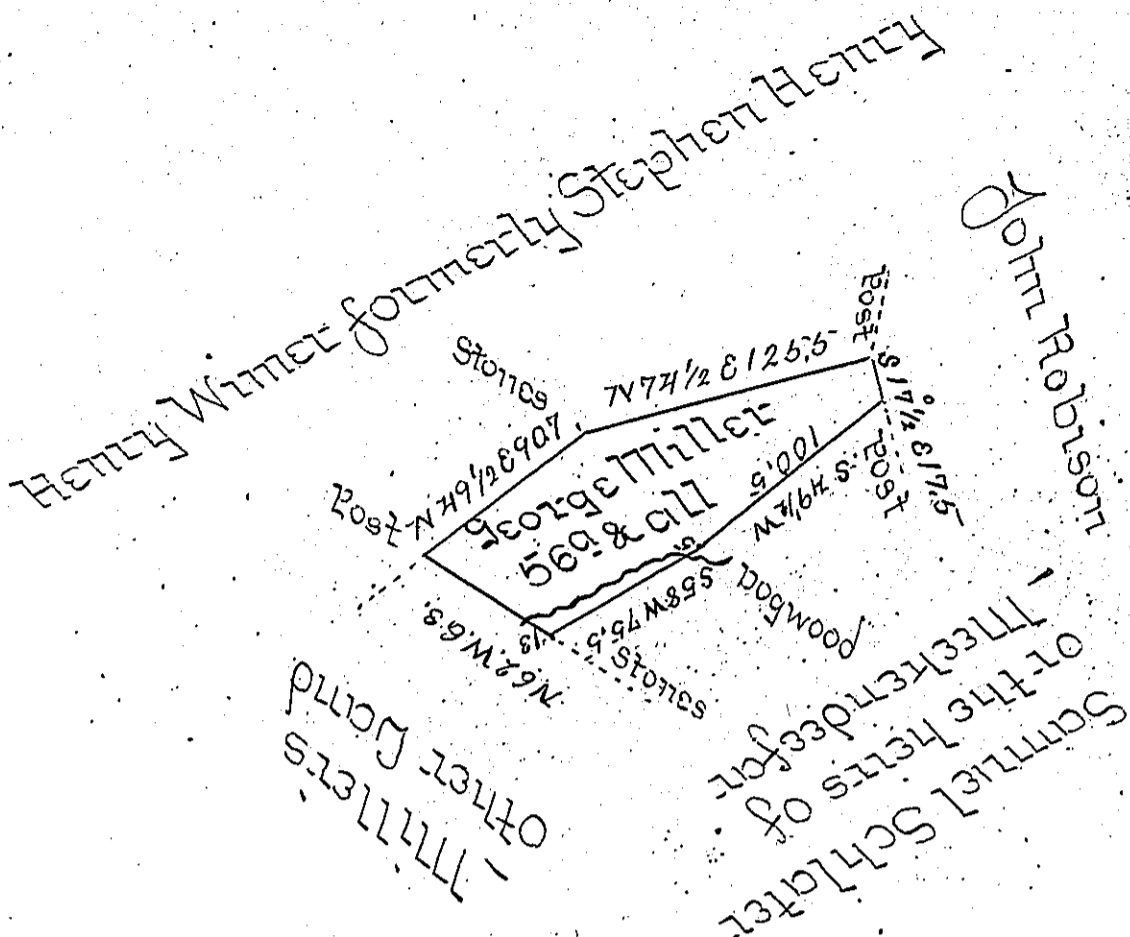 Henry Wimer formerly Stephen Henry
John Robison
Stones
N 74 1/2 E 125,5
Post
S 17 1/2° E 17.5
Post
N 49 1/2 E 90.7
Post
George Miller
56a & all
100,5
S. 49 1/2 W
5
S58W 75.5
13
Stones
N.62.W.63.
Miller's
Other Land
Samuel Schlater
or the heirs of